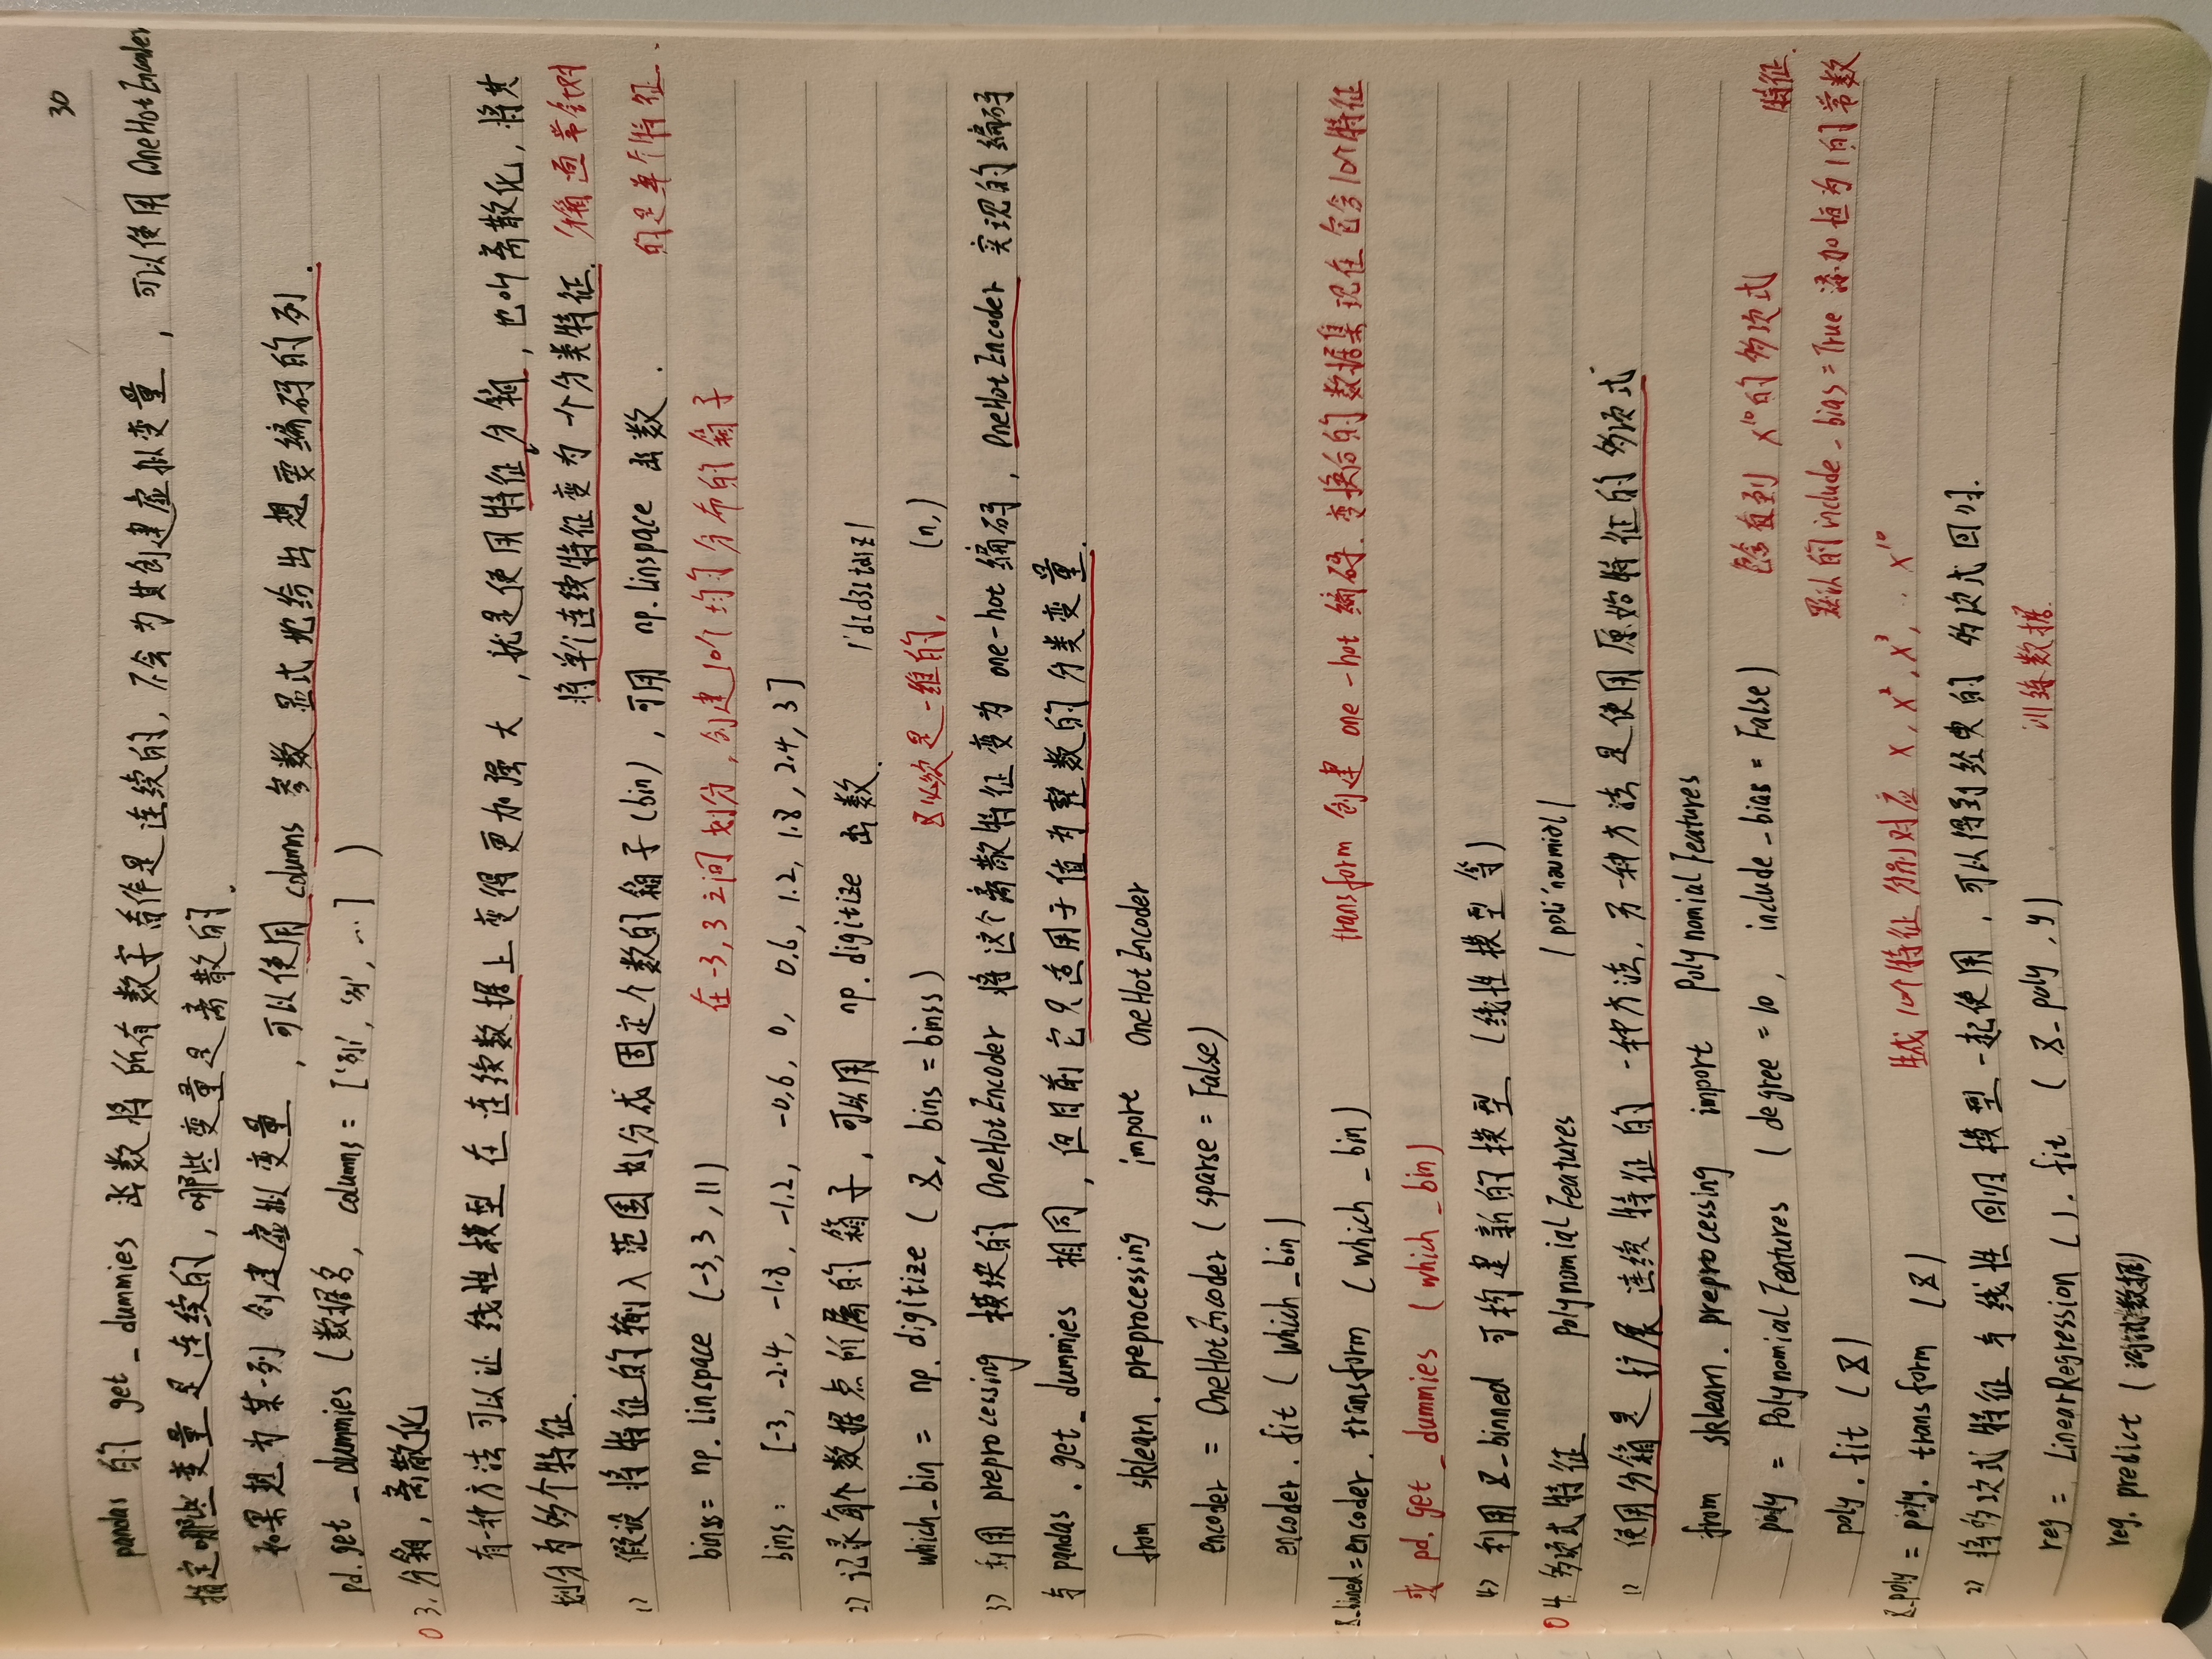 30
pandas 的 get_dummies 函数将所有数字看作是连续的, 不会为其创建虚拟变量, 可以使用 OneHotEncoder
指定哪些变量是连续的, 哪些变量是离散的.
如果想为某一列创建虚拟变量, 可以使用 columns 参数显式地给出想要编码的列.
pd.get_dummies (数据名, columns = ['列', '列', …] )
03. 分箱, 离散化
有一种方法可以让线性模型在连续数据上变得更加强大, 就是使用特征分箱, 也叫离散化, 将其
划分为多个特征. 将单个连续特征变为一个分类特征. 分箱通常针对
的是单个特征.
1) 假设将特征的输入范围划分成固定个数的箱子(bin), 可用 np.linspace 函数.
bins = np.linspace (-3, 3, 11) 在-3, 3之间划分, 创建10个均匀分布的箱子
bins: [-3, -2.4, -1.8, -1.2, -0.6, 0, 0.6, 1.2, 1.8, 2.4, 3]
2) 记录每个数据点所属的箱子, 可以用 np.digitize 函数. /'dɪdʒɪtaɪz/
which_bin = np.digitize (X, bins = bins) X必须是一维的, (n,)
3) 利用 preprocessing 模块的 OneHotEncoder 将这个离散特征变为 one-hot 编码, OneHotEncoder 实现的编码
与 pandas.get_dummies 相同, 但目前它只适用于值为整数的分类变量.
from sklearn.preprocessing import OneHotEncoder
encoder = OneHotEncoder (sparse = False)
encoder.fit (which_bin)
X_binned = encoder.transform (which_bin) transform 创建 one-hot 编码. 变换后的数据集现在包含10个特征
或 pd.get_dummies (which_bin)
4) 利用 X_binned 可构建新的模型 (线性模型等)
04. 多项式特征 PolynomialFeatures
1) 使用分箱是扩展连续特征的一种方法, 另一种方法是使用原始特征的多项式.
from sklearn.preprocessing import PolynomialFeatures
poly = PolynomialFeatures (degree = 10, include_bias = False) 包含直到 x¹⁰的多项式 特征.
poly.fit (X) 默认的 include_bias = True 添加恒为1的常数
X_poly = poly.transform (X) 生成10个特征分别对应 x, x², x³, … x¹⁰
2) 将多项式特征与线性回归模型一起使用, 可以得到经典的多项式回归.
reg = LinearRegression ( ).fit (X_poly, y) 训练数据.
reg.predict (测试数据)